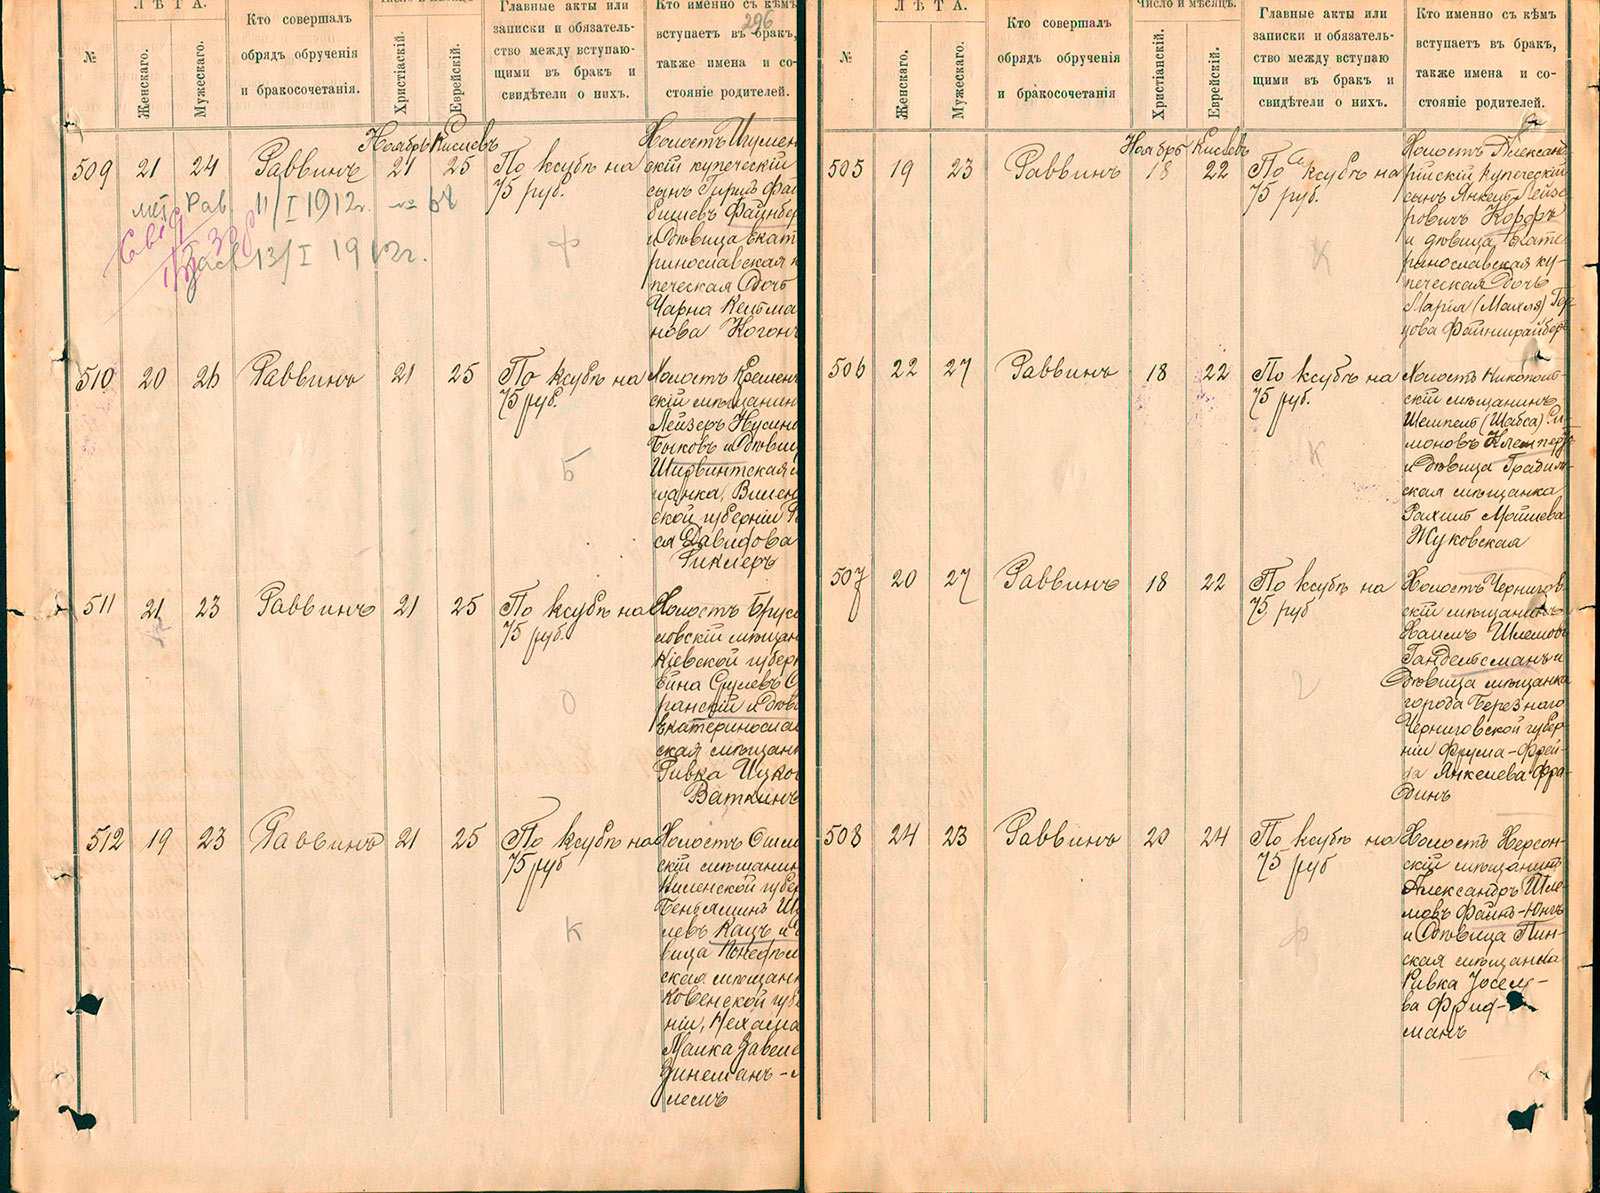 ЛѢТА.
№
Женскаго.
Мужескаго.
Кто совершалъ
обрядъ обрученія
и бракосочетанія.
Число и мѣсяцъ
Христіаскій.
Еврейскій.
Главные акты или
записки и обязатель-
ство между вступаю-
щими въ бракъ и
свидѣтели о нихъ.
Кто именно съ кѣмъ
вступаетъ въ бракъ,
также имена и со-
стояніе родителей.
296
Ноябрь Кислевъ
509 21 24 Раввинъ 21 25 По ксубѣ на
75 руб.
Холостъ Игумен
скій купеческій
сынъ Гирш Фай
бишевъ Файнбер
и Дѣвица Екат
ринославская к
печеская Дочь
Чарна Кейлма
нова Когонъ
мет. Рав. 11/I 1912г. № 68
13/I 1912г.
Ф
510 20 26 Раввинъ 21 25 По ксубѣ на
75 руб.
Холостъ Кремен
скій мѣщанинъ
Лейзеръ Нусино
Быковъ и Дѣвиц
Ширвинтская м
щанка, Вилен
ской губерніи Р
ся Давидова
Риклеръ
Б
511 21 23 Раввинъ 21 25 По ксубѣ на
75 руб.
Холостъ Брус
ловскій мѣщан
Кіевской губер
Ейна Срулевъ О
ранскій и Дѣв
Екатеринослав
ская мѣщанк
Ривка Ицко
Ваткинъ
О
512 19 23 Раввинъ 21 25 По ксубѣ на
75 руб
Холостъ Ошм
скій мѣщанин
Виленской губер
Беньяминъ Ш
левъ Кацъ и Д
вица Поневѣж
ская мѣщанк
Ковенской губе
ніи, Нехама
Малка Завеле
Зинеманъ-
лемъ
К
ЛѢТА.
№
Женскаго.
Мужескаго.
Кто совершалъ
обрядъ обрученія
и бракосочетанія
Число и мѣсяцъ.
Христіанскій.
Еврейскій.
Главные акты или
записки и обязатель-
ство между вступаю
щими въ бракъ и
свидѣтели о нихъ.
Кто именно съ кѣмъ
вступаетъ въ бракъ,
также имена и со-
стояніе родителей.
Ноябрь Кислевъ
505 19 23 Раввинъ 18 22 По ксубѣ на
75 руб.
Холостъ Александ
рійскій Купеческій
сынъ Янкель Лейзе-
ровичъ Корфъ
и дѣвица, Екате-
ринославская ку-
печеская Дочь
Марія (Махля) Гер-
цова Файнштрайберъ
К
506 22 27 Раввинъ 18 22 По ксубѣ на
75 руб.
Холостъ Никополь-
скій мѣщанинъ
Шепсель (Шабса) Си-
моновъ Клемперъ
и Дѣвица Градиж-
ская мѣщанка
Рахиль Мойшева
Жуковская
К
507 20 27 Раввинъ 18 22 По ксубѣ на
75 руб
Холостъ Чернигов-
скій мѣщанинъ
Хаимъ Шлемовъ
Гандельсманъ и
Дѣвица мѣщанка
города Березнаго
Черниговской губер-
ніи Фрума-Фрей-
да Янкелева Фра-
динъ
Г
508 24 23 Раввинъ 20 24 По ксубѣ на
75 руб
Холостъ Херсон-
скій мѣщанинъ
Александръ Шле-
мовъ Файнъ-Юнгъ
и Дѣвица Пин-
ская мѣщанка
Ривка Іосел-
ва Фрид-
манъ
Ф